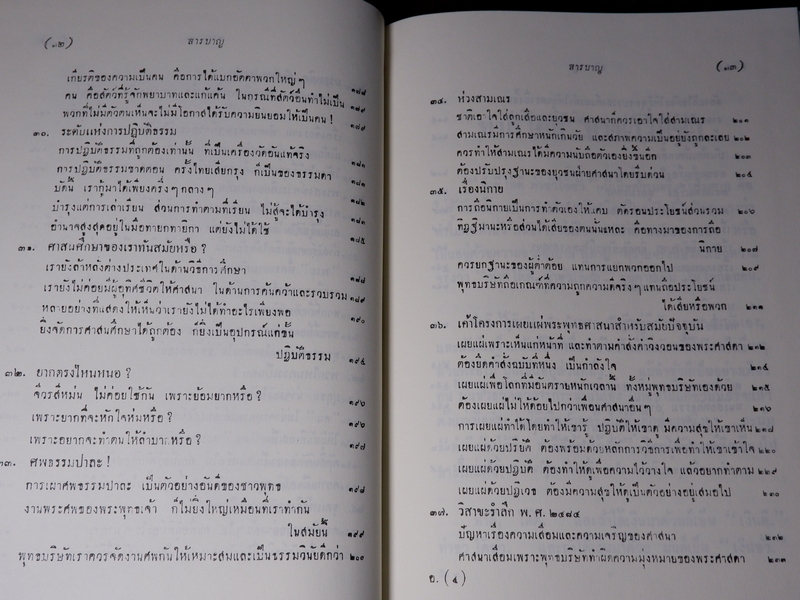 (๑๒) สารบาญ
เกียรติของความเป็นคน คือการได้แบกอัตตาพวกใหญ่ๆ ๑๘๘
คน คือสัตว์ที่รู้จักพยาบาทและแก้แค้น ในกรณีที่สัตว์อื่นทำไม่เป็น ๑๘๙
พวกที่ไม่มีตัวตนเห็นจะไม่มีโอกาสได้รับความยินยอมให้เป็นคน! ๑๘๙
๓๐. ระดับแห่งการปฏิบัติธรรม
การปฏิบัติธรรมที่ถูกต้องเท่านั้น ที่เป็นเครื่องวัดอันแท้จริง
การปฏิบัติธรรมขาดตอน ครั้งไทยเสียกรุง ก็เป็นของธรรมดา ๑๘๑
บัดนี้ เรากู้มาได้เพียงครึ่งๆ กลางๆ ๑๘๑
บำรุงแต่การเล่าเรียน ส่วนการทำตามที่เรียน ไม่สู้จะได้บำรุง ๑๘๒
อำนาจสูงสุดอยู่ในมือทายกทายิกา แต่ยังไม่ได้ใช้ ๑๘๑
๑๘๕
๓๑. ศาสนศึกษาของเราทันสมัยหรือ?
เรายังล้าหลังต่างประเทศในด้านวิธีการศึกษา
เรายังไม่ค่อยมีผู้อุทิศชีวิตให้ศาสนา ในด้านการค้นคว้าและรวบรวม ๑๘๘
หลายอย่างที่แสดงให้เห็นว่าเรายังไม่ได้ทำอะไรเพียงพอ ๑๘๙
ยิ่งจัดการศาสนศึกษาได้ถูกต้อง ก็ยิ่งเป็นอุปกรณ์แก่ชั้น ๑๙๐
ปฏิบัติธรรม ๑๙๔
๓๒. ยากตรงไหนหนอ?
จีวรสีหม่น ไม่ค่อยใช้กัน เพราะย้อมยากหรือ? ๑๙๖
เพราะยากที่จะหักใจห่มหรือ? ๑๙๖
เพราะอยากจะทำตนให้ลำบากหรือ? ๑๙๗
๓๓. ศพธรรมปาละ!
การเผาศพธรรมปาละ เป็นตัวอย่างอันดีของชาวพุทธ ๑๙๘
งานพระศพของพระพุทธเจ้า ก็ไม่ยิ่งใหญ่เหมือนที่เราทำกัน
ในสมัยนี้ ๑๙๙
พุทธบริษัทเราควรจัดงานศพกันให้เหมาะสมและเป็นธรรมวินัยดีกว่า ๒๐๐
สารบาญ (๑๓)
๓๔. ห่วงสามเณร
ชาติเอาใจใส่ลูกเสือและยุวชน ศาสนาก็ควรเอาใจใส่สามเณร ๒๐๑
สามเณรมีการศึกษาหนักเกินวัย และสภาพความเป็นอยู่ยังถูกละเลย ๒๐๒
ควรทำให้สามเณรได้มีความนับถือตัวเองยิ่งขึ้นอีก ๒๐๓
ต้องปรับปรุงฐานะของยุวชนฝ่ายศาสนาโดยรีบด่วน ๒๐๔
๓๕. เรื่องนิกาย
การถือนิกายเป็นการทำตัวเองให้แคบ ตัดรอนประโยชน์ส่วนรวม ๒๐๖
ทิฏฐิมานะหรือส่วนได้เสียของตนนั้นแหละ คือทางมาของการถือ
นิกาย ๒๐๗
ควรยกฐานะของผู้ต่ำต้อย แทนการแยกพวกออกไป ๒๐๙
พุทธบริษัทถือเกณฑ์ที่ความถูกความดีจริงๆ แทนถือประโยชน์
ได้เสียหรือพวก ๒๑๑
๓๖. เค้าโครงการเผยแผ่พระพุทธศาสนาสำหรับสมัยปัจจุบัน
เผยแผ่เพราะเห็นแก่หน้าที่ และทำตามคำสั่งคำวิงวอนของพระศาสดา ๒๑๒
ต้องยึดคำสั่งฉบับที่หนึ่ง เป็นกำลังใจ ๒๑๔
เผยแผ่เพื่อโลกที่มีอันตรายหนักเวลานี้ ทั้งหมู่พุทธบริษัทเองด้วย ๒๑๕
ต้องเผยแผ่ไม่ให้ด้อยไปกว่าเพื่อนศาสนาอื่นๆ ๒๑๖
การเผยแผ่ทำได้โดยทำให้เขารู้ ปฏิบัติให้เขาดู มีความสุขให้เขาเห็น ๒๑๘
เผยแผ่ด้วยปริยัติ ต้องพร้อมด้วยหลักการวิธีการเพื่อทำให้เขาเข้าใจ ๒๒๐
เผยแผ่ด้วยปฏิบัติ ต้องทำให้ดูเพื่อความไว้วางใจ แล้วอยากทำตาม ๒๒๙
เผยแผ่ด้วยปฏิเวธ ต้องมีความสุขให้ดูเป็นตัวอย่างอยู่เสมอไป ๒๓๐
๓๗. วิสาขะรำลึก พ. ศ. ๒๔๘๔
ปัญหาเรื่องความเสื่อมและความเจริญของศาสนา ๒๓๒
ศาสนาเสื่อมเพราะพุทธบริษัททำผิดความมุ่งหมายของพระศาสดา ๒๓๓
อ. (๔)